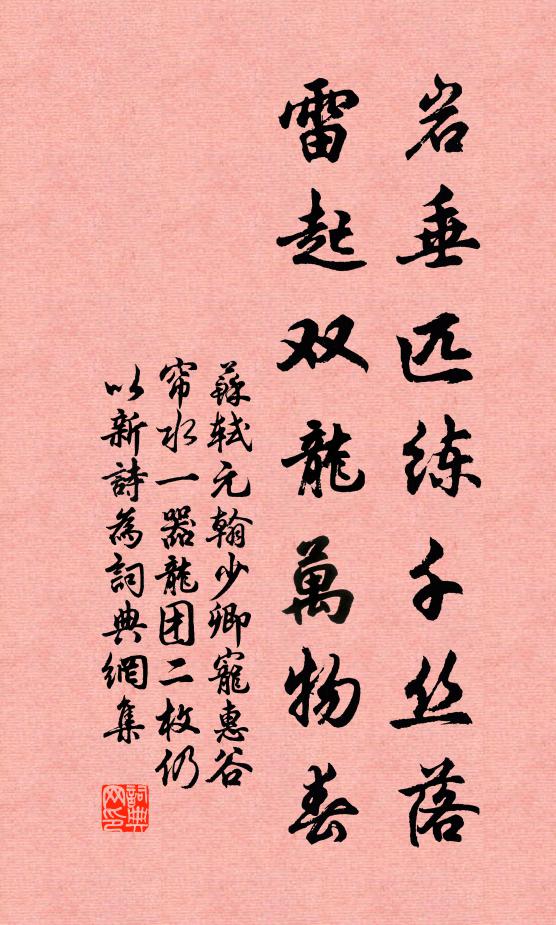 岩垂匹练千丝落
雷起双龍萬物春
蘇軾元翰少卿寵惠谷
帘水一器龍团二枚仍
以新詩為詞典網集
詞典网印